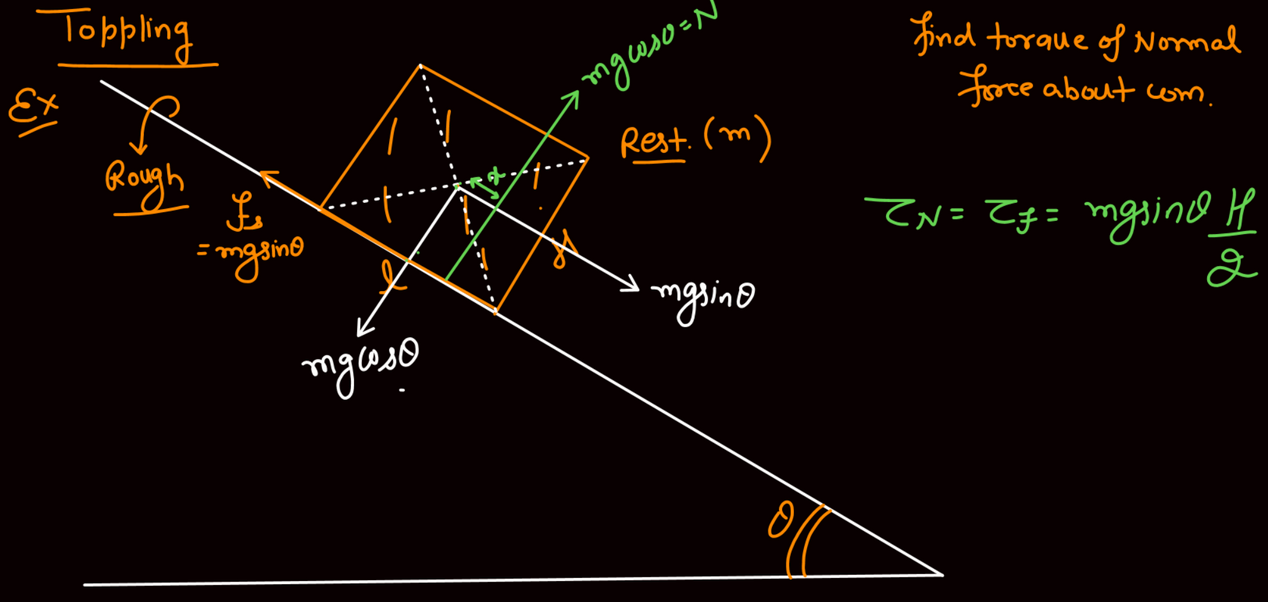 Toppling
Ex
Rough
fs
= mgsinθ
l
mgcosθ
mgcosθ = N
x
Rest. (m)
mgsinθ
θ
find torque of Normal
force about com.
τN = τf = mgsinθ H/2